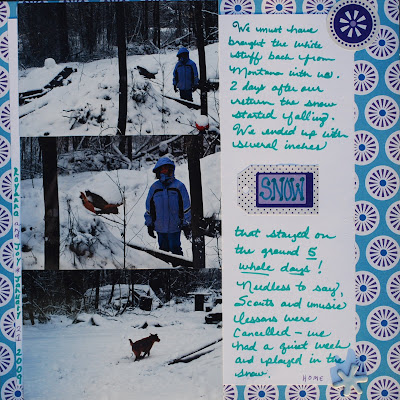 We must have
brought the white
stuff back from
Montana with us.
2 days after our
return the snow
started falling.
We ended up with
several inches
SNOW
that stayed on
the ground 5
whole days!
Needless to say,
Scouts and music
lessons were
cancelled - we
had a quiet week
and played in the
snow.
HOME
January
2009